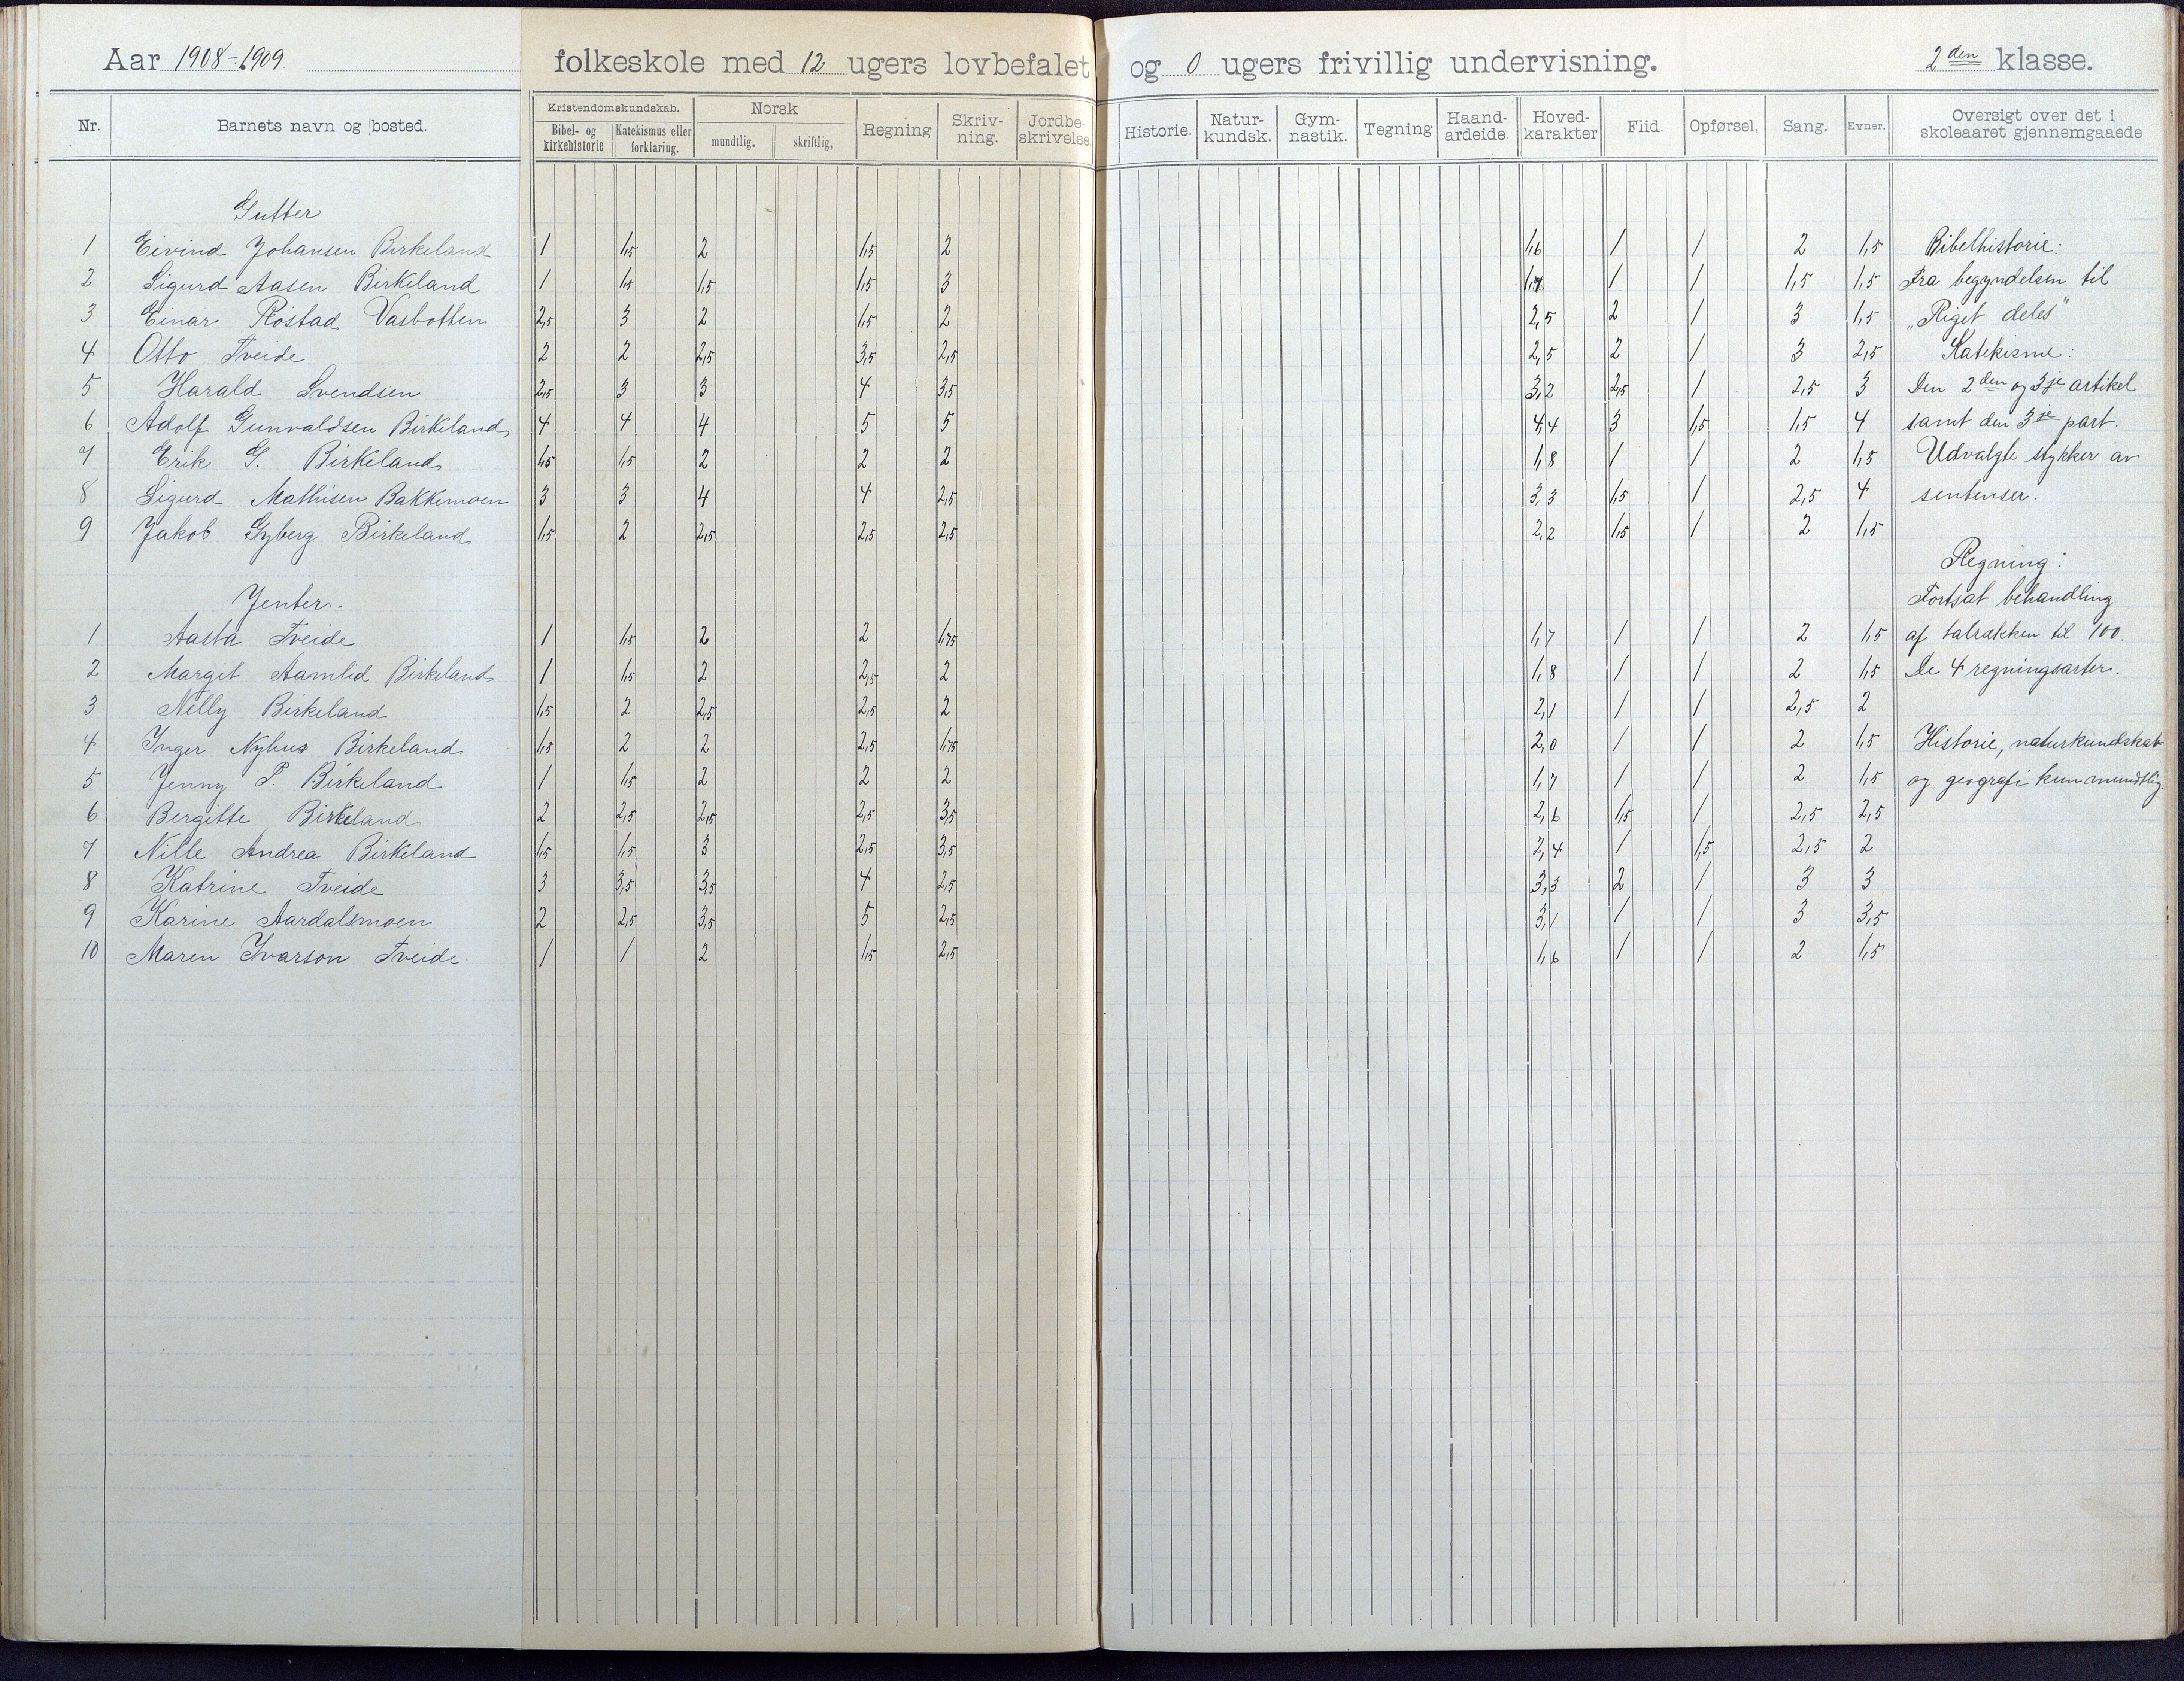 Aar 1908-1909 folkeskole med 12 ugers lovbefalet og 0 ugers frivillig undervisning. 2den klasse.
Nr. Barnets navn og bosted. Kristendomskundskab. Bibel- og kirkehistorie Katekismus eller forklaring. Norsk mundtlig. skriftlig, Regning Skriv-ning. Jordbe-skrivelse. Historie. Natur-kundsk. Gym-nastik. Tegning Haand-arbeide. Hoved-karakter Flid. Opførsel, Sang. Evner. Oversigt over det i skoleaaret gjennemgaaede
Gutter
1 Eivind Johansen Birkeland 1 1,5 2 1,5 2 1,6 1 1 2 1,5 Bibelhistorie:
2 Sigurd Aasen Birkeland 1 1,5 1,5 1,5 3 1,7 1 1 1,5 1,5 Fra begyndelsen til
3 Einar Rostad Vasbotten 2,5 3 2 1,5 2 2,5 2 1 3 1,5 „Riget deles"
4 Otto Tveide 2 2 2,5 3,5 2,5 2,5 2 1 3 2,5 Katekisme:
5 Harald Svendsen 2,5 3 3 4 3,5 3,2 2,5 1 2,5 3 Den 2den og 3je artikel
6 Adolf Gunvaldsen Birkeland 4 4 4 5 5 4,4 3 1,5 1,5 4 samt den 3je part.
7 Erik G. Birkeland 1,5 1,5 2 2 2 1,8 1 1 2 1,5 Udvalgte stykker av
8 Sigurd Mathisen Bakkemoen 3 3 4 4 2,5 3,3 1,5 1 2,5 4 sentenser.
9 Jakob Gyberg Birkeland 1,5 2 2,5 2,5 2,5 2,2 1,5 1 2 1,5
Regning:
Jenter. Fortsat behandling
1 Aasta Tveide 1 1,5 2 2 1,75 1,7 1 1 2 1,5 af talrækken til 100.
2 Margit Aamlid Birkeland 1 1,5 2 2,5 2 1,8 1 1 2 1,5 De 4 regningsarter.
3 Nelly Birkeland 1,5 2 2,5 2,5 2 2,1 1 1 2,5 2
4 Inger Nyhus Birkeland 1,5 2 2 2,5 1,75 2,0 1 1 2 1,5 Historie, naturkundskab
5 Jenny P. Birkeland 1 1,5 2 2 2 1,7 1 1 2 1,5 og geografi kun mundtlig.
6 Bergitte Birkeland 2 2,5 2,5 2,5 3,5 2,6 1,5 1 2,5 2,5
7 Nille Andrea Birkeland 1,5 1,5 3 2,5 3,5 2,4 1 1,5 2,5 2
8 Katrine Tveide 3 3,5 3,5 4 2,5 3,3 2 1 3 3
9 Karine Aardalsmoen 2 2,5 3,5 5 2,5 3,1 1 1 3 3,5
10 Maren Ivarson Tveide 1 1 2 1,5 2,5 1,6 1 1 2 1,5